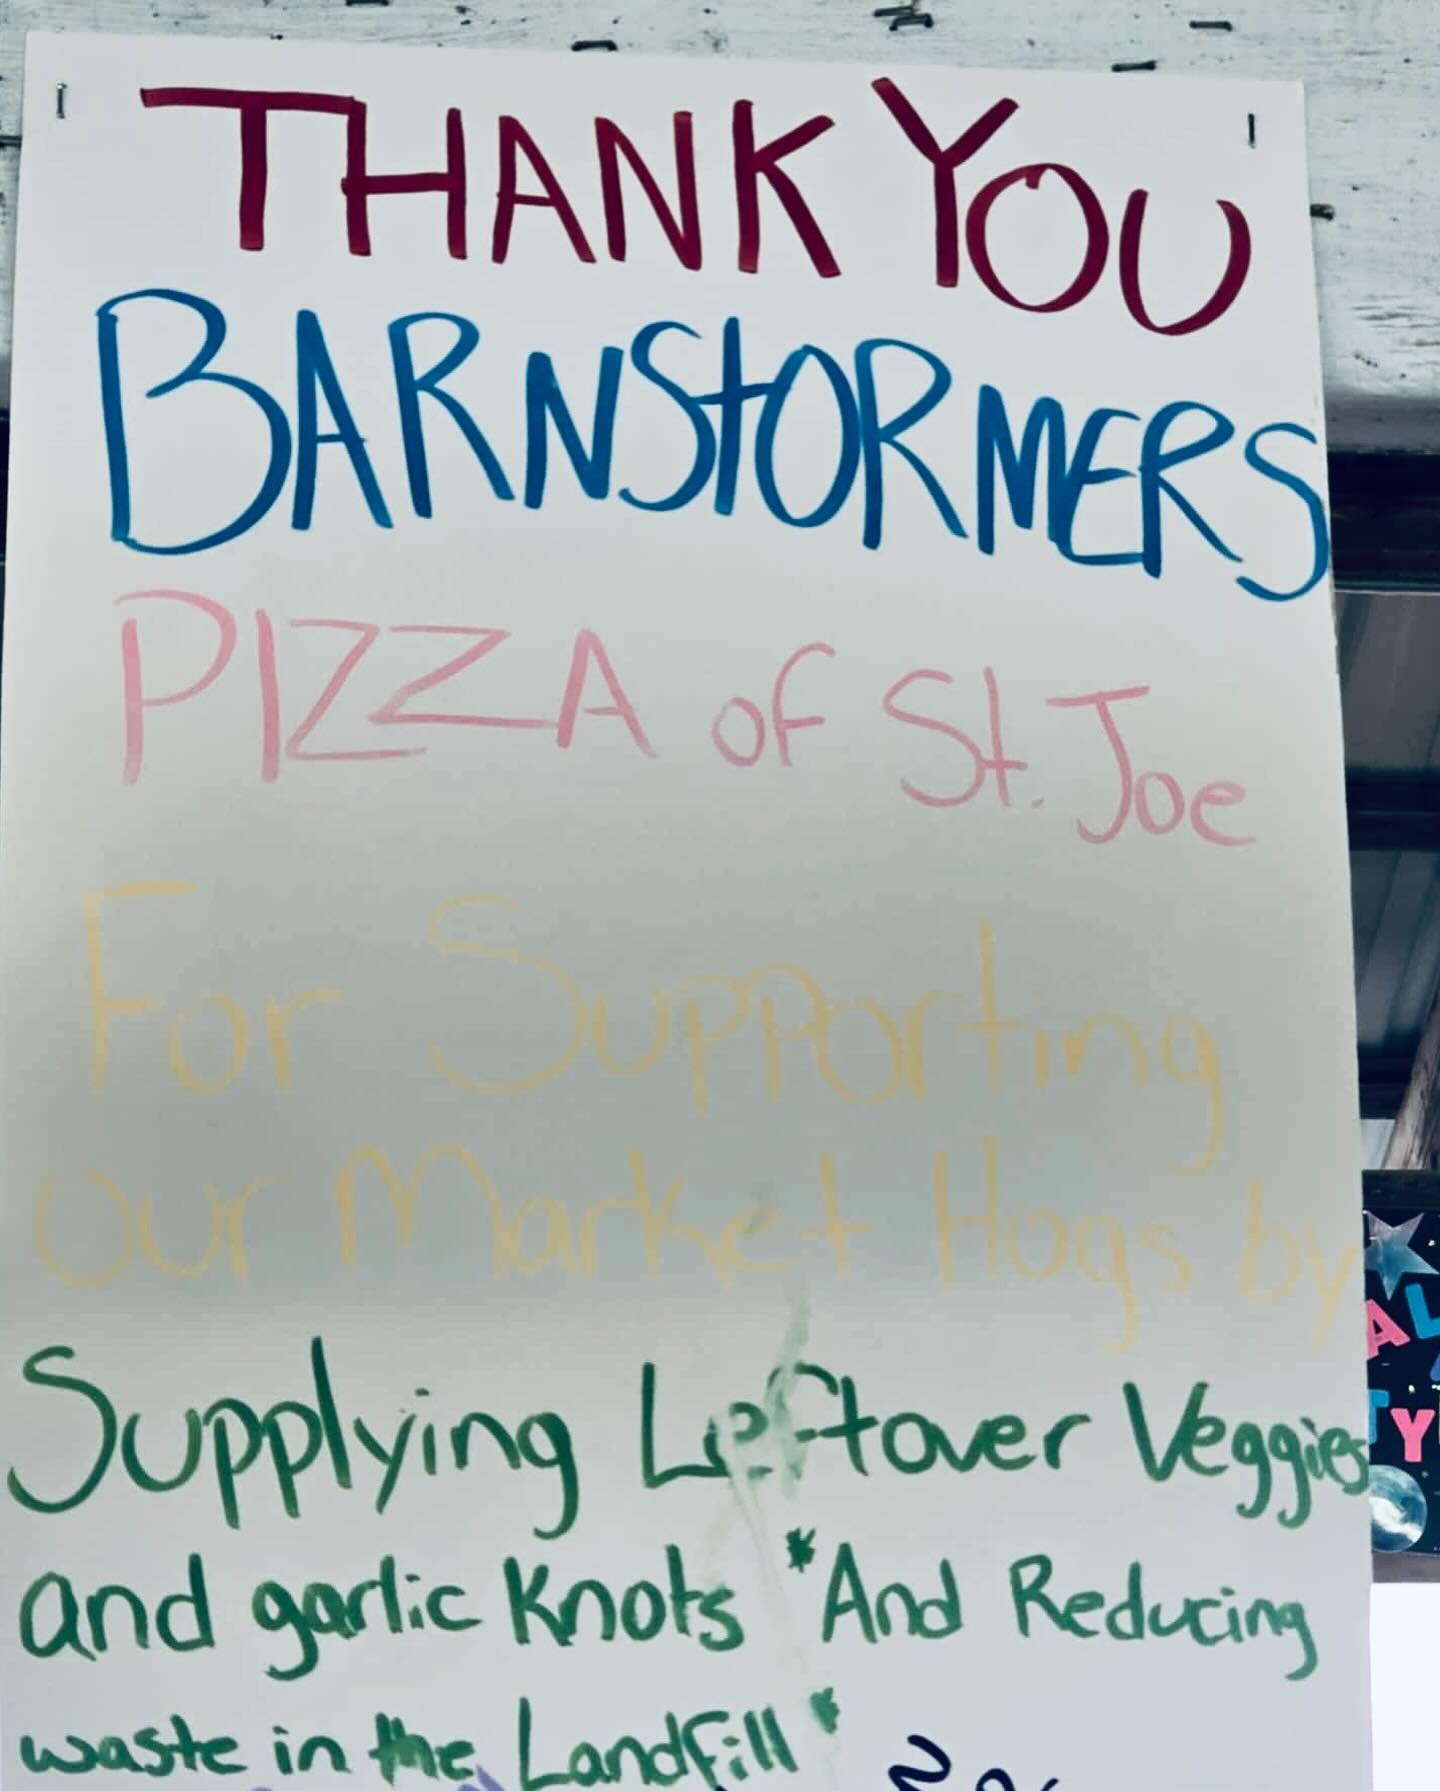 THANK YOU
BARNStORMERS
PIZZA of St. Joe
For Supporting
our Market Hogs by
Supplying Leftover Veggies
and garlic Knots *And Reducing
waste in the Landfill*